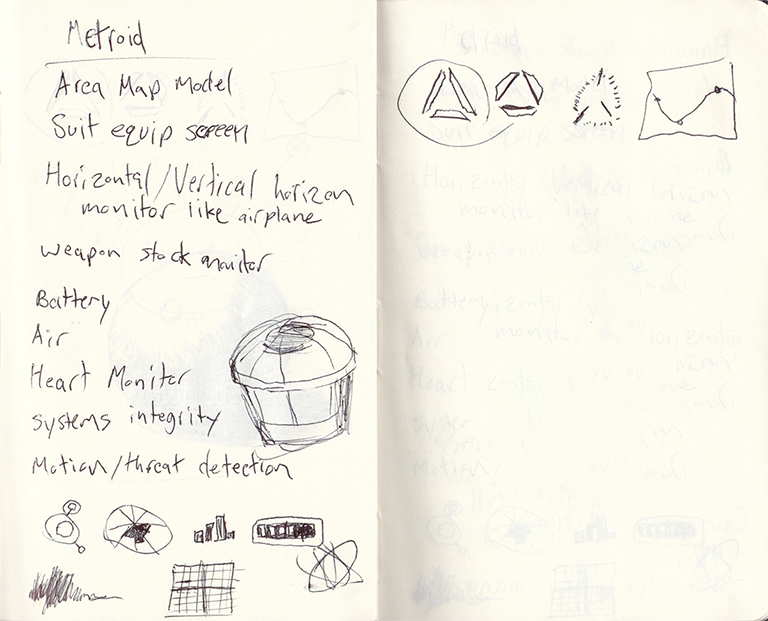 Metroid
Area Map Model
Suit equip screen
Horizontal/Vertical horizon
monitor like airplane
weapon stock monitor
Battery
Air
Heart Monitor
systems integrity
Motion/threat detection